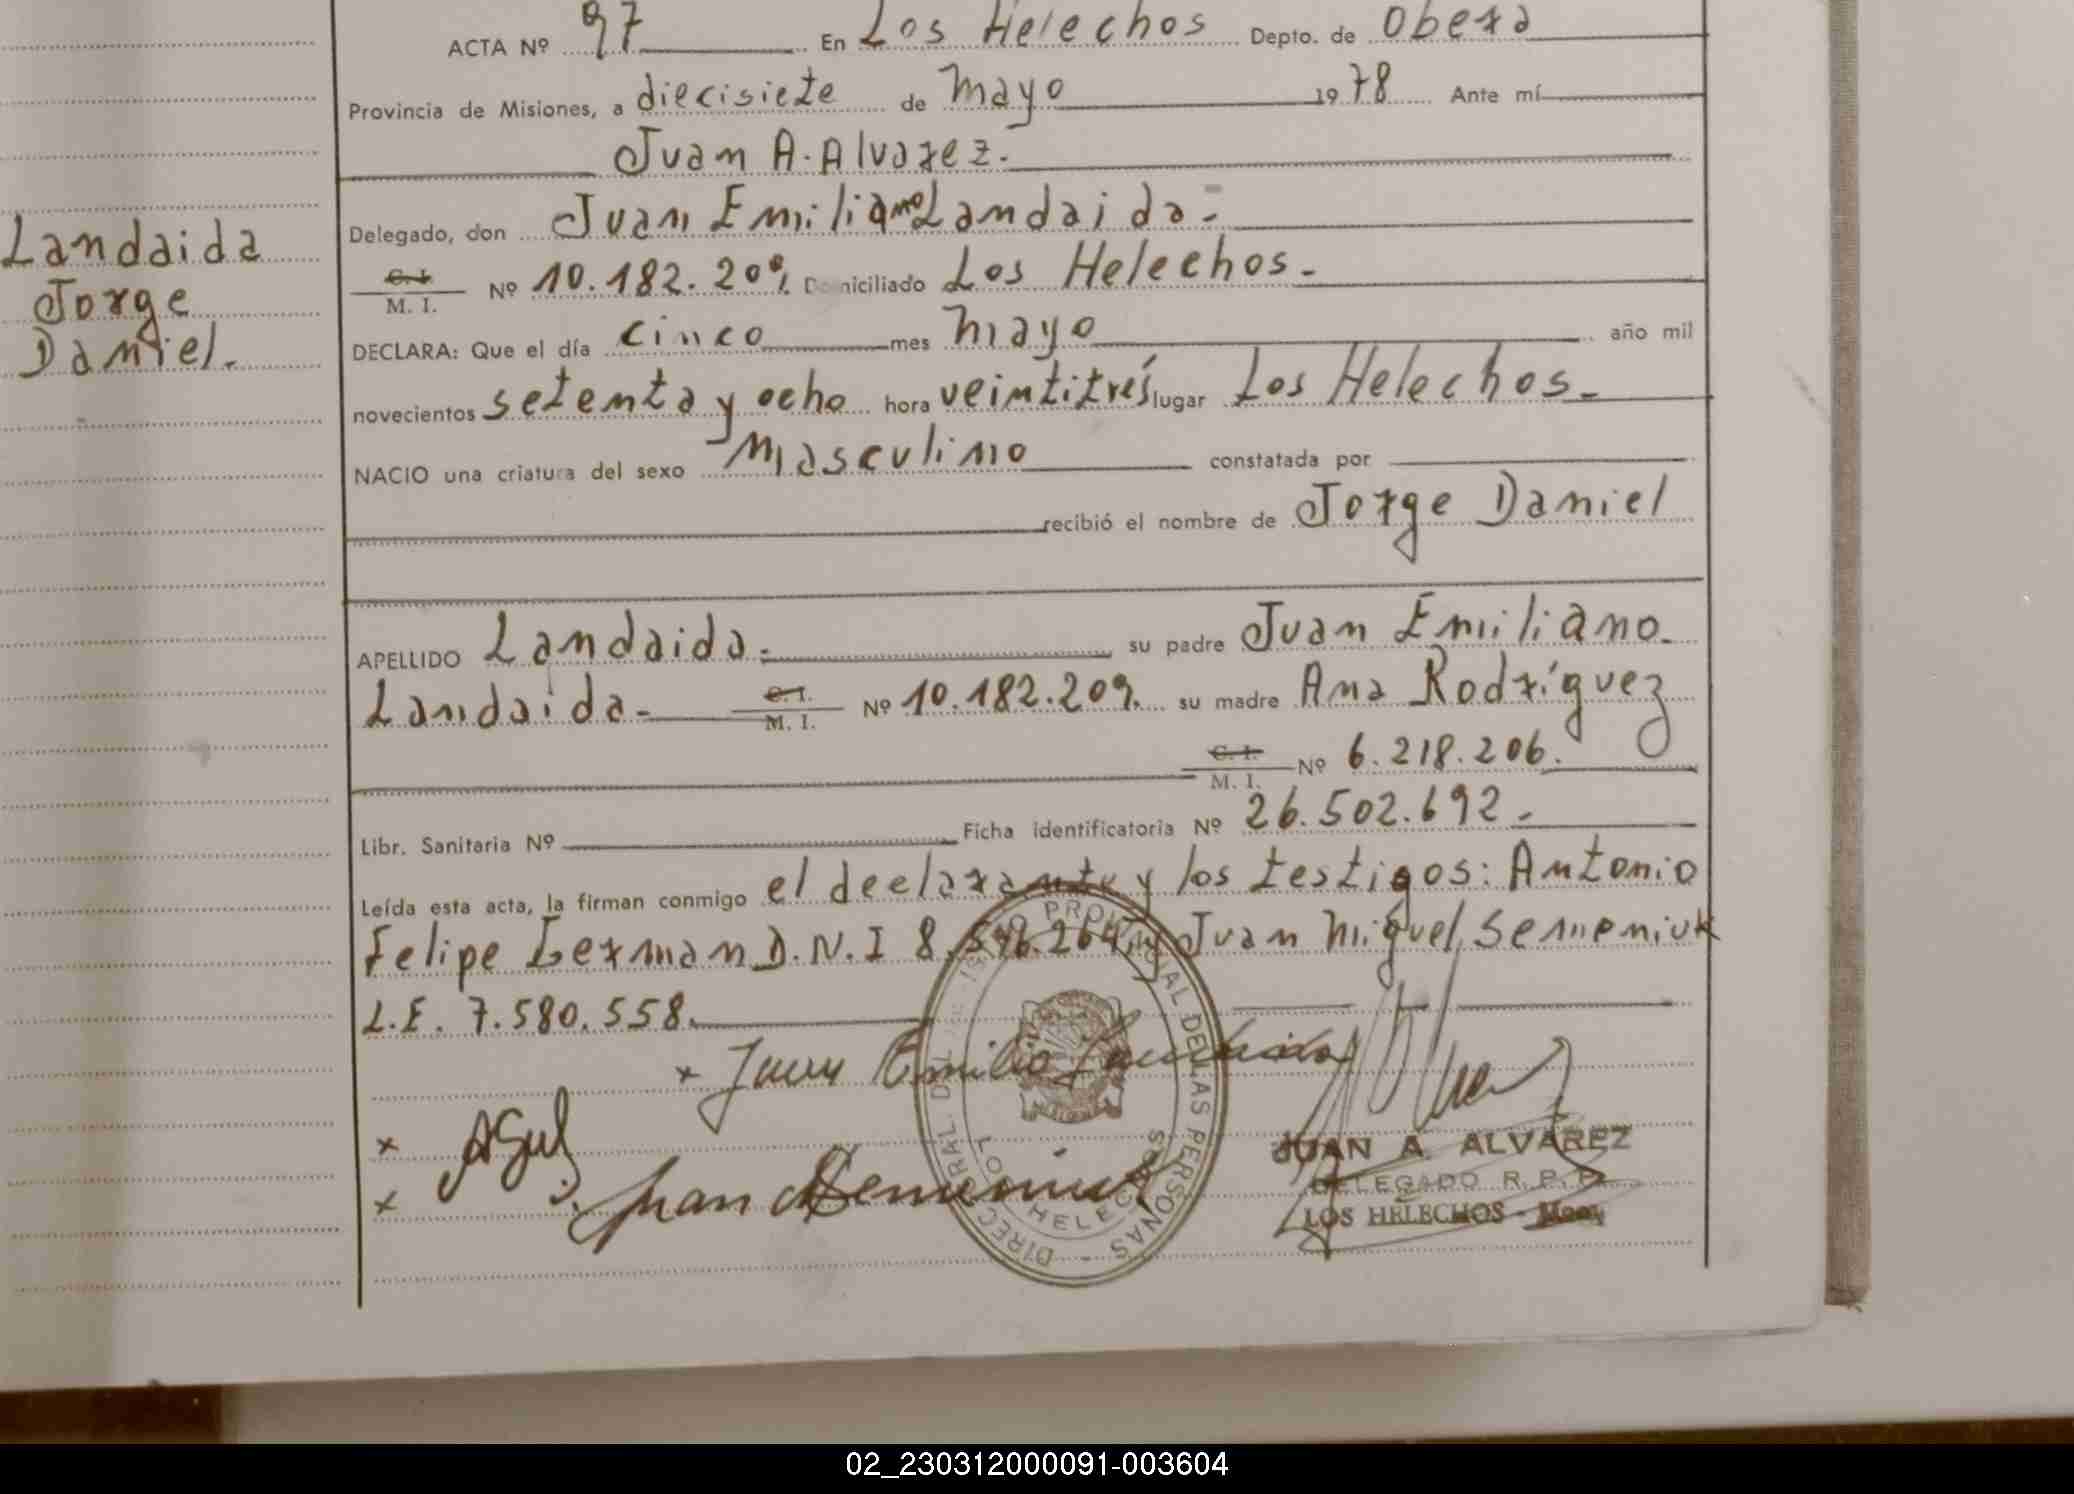 ACTA Nº 97 En Los Helechos Depto. de Oberá
Provincia de Misiones, a diecisiete de Mayo 1978 Ante mí
Juan A. Alvarez.
Delegado, don Juan Emiliano Landaida.
C. I. / M. I. Nº 10.182.209. Domiciliado Los Helechos.
Landaida
Jorge
Daniel.
DECLARA: Que el día cinco mes Mayo año mil
novecientos setenta y ocho hora veintitrés lugar Los Helechos.
NACIO una criatura del sexo Masculino constatada por
recibió el nombre de Jorge Daniel
APELLIDO Landaida. su padre Juan Emiliano
Landaida. C. I. / M. I. Nº 10.182.209. su madre Ana Rodríguez
C. I. / M. I. Nº 6.218.206.
Libr. Sanitaria Nº Ficha identificatoria Nº 26.502.692.
Leída esta acta, la firman conmigo el declarante y los testigos: Antonio
Felipe Lerman D.N.I 8.546.264, y Juan Miguel Semeniuk
L.E. 7.580.558.
x Juan Emilio Landaida
x
x Juan M Semeniuk
JUAN A. ALVAREZ
DELEGADO R. P. P.
LOS HELECHOS - Mnes.
LOS HELECHOS
02_230312000091-003604